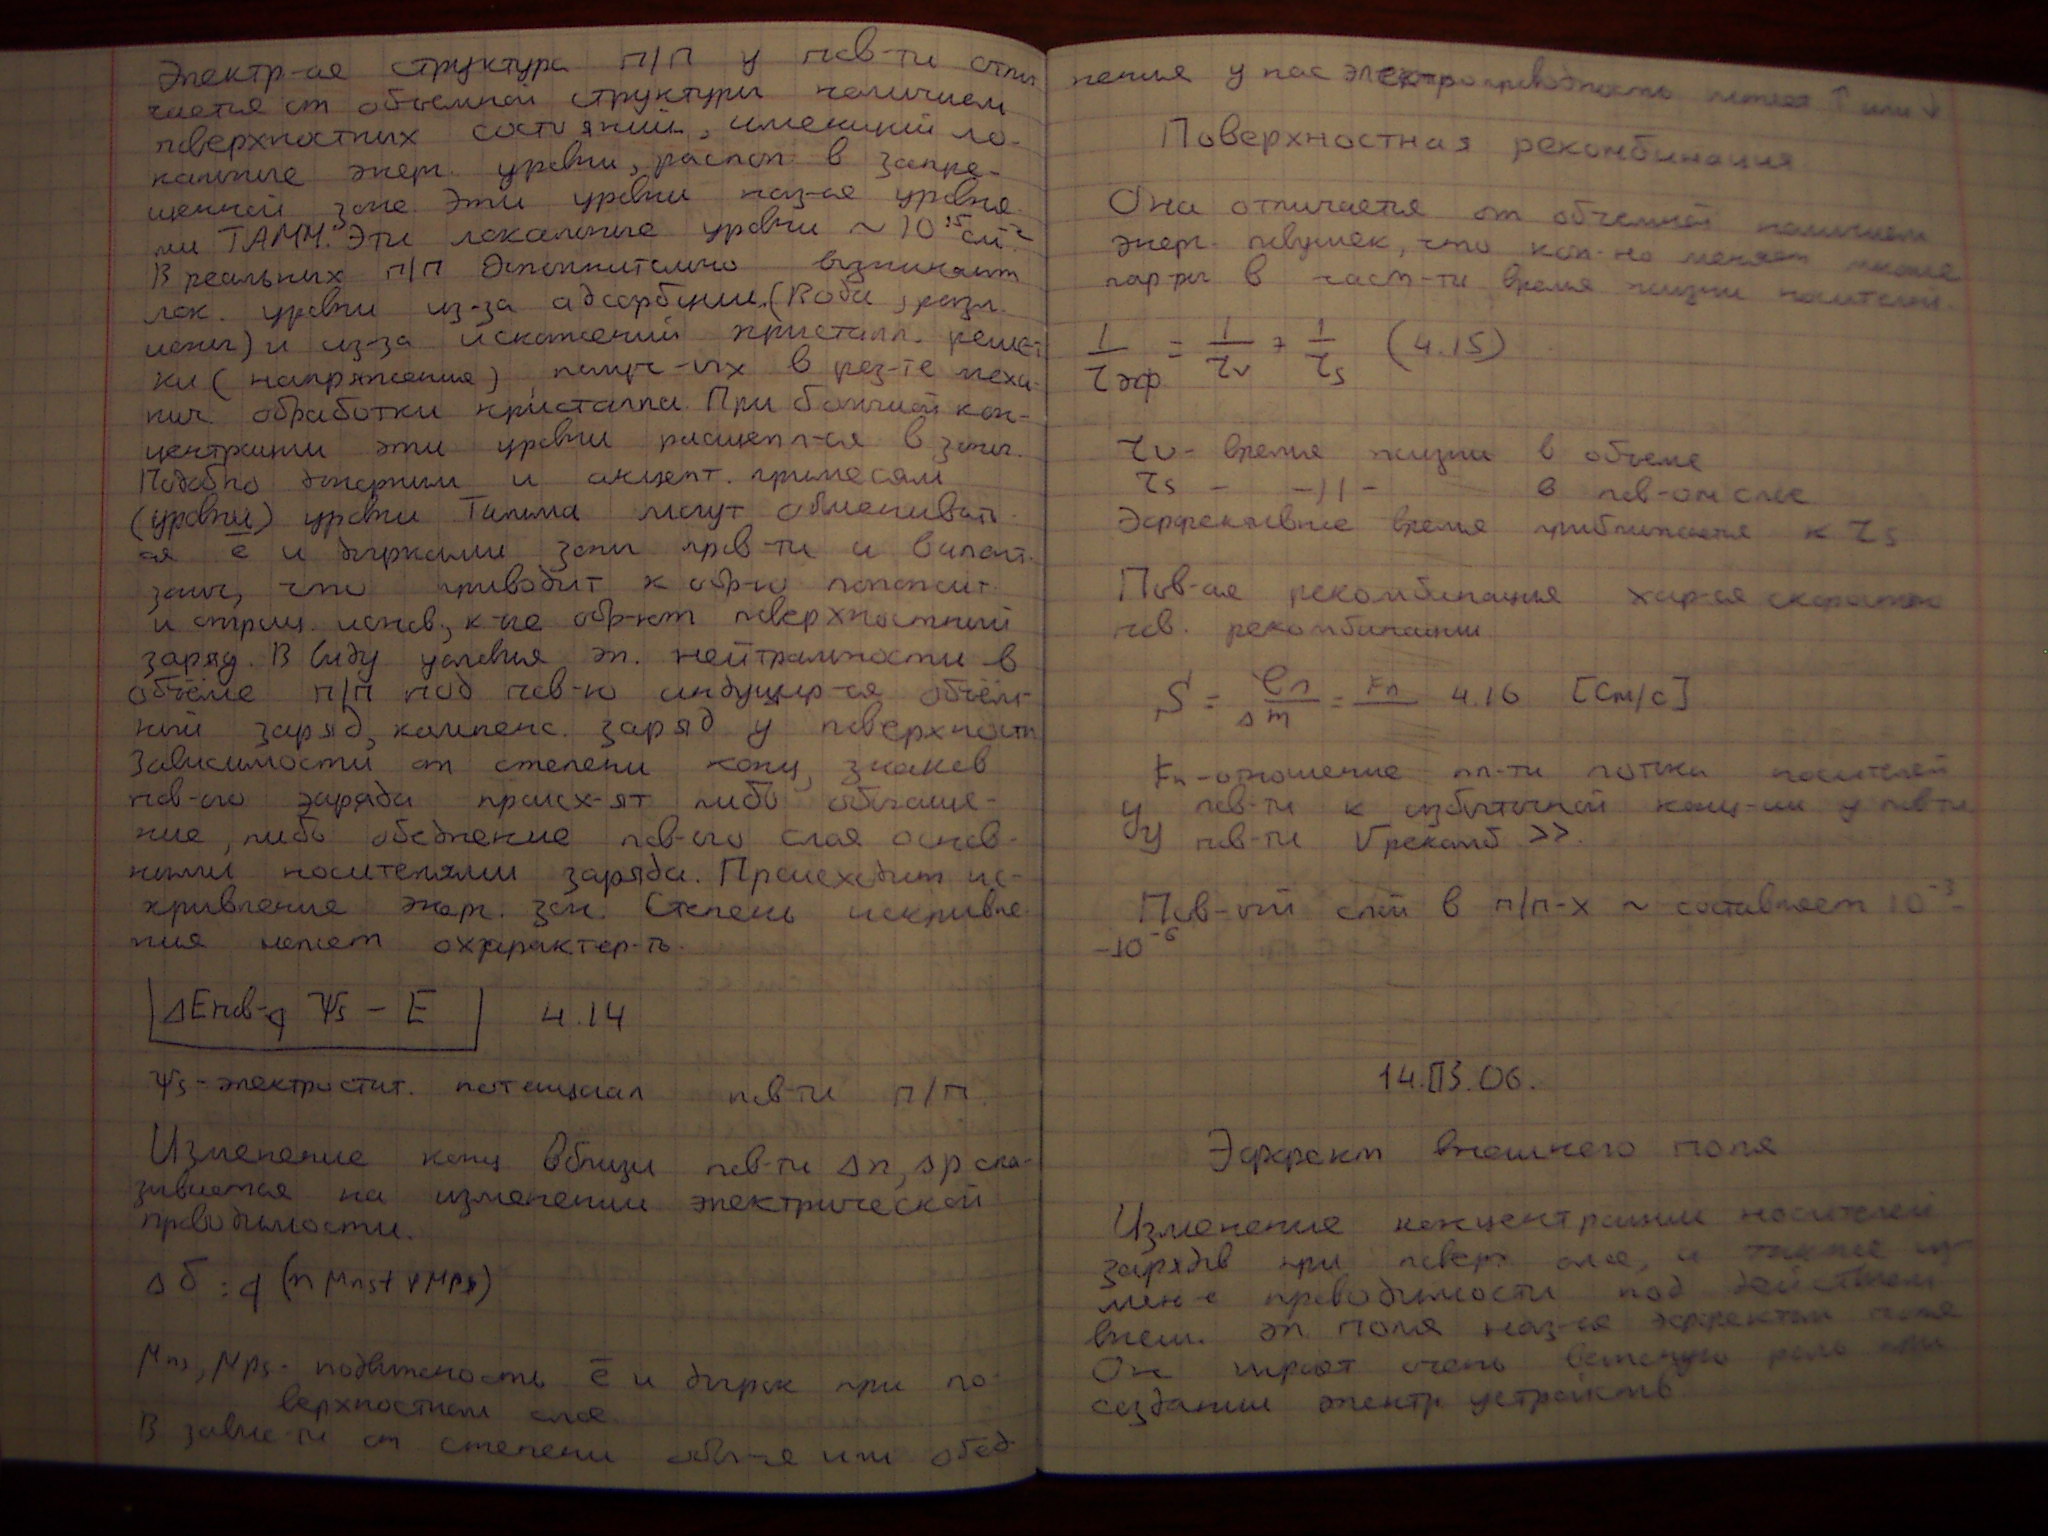 Электр-ая структура п/п у пов-ти отли
чается от объемной структуры наличием
поверхностных состояний, имеющий ло-
кальные энерг. уровни, распол. в запре-
щенной зоне. Эти уровни наз-ся уровня
ми ТАММ. Эти локальные уровни ~ 10¹⁵см⁻²
В реальных п/п дополнительно возникают
лок. уровни из-за адсорбции (Вода, разл.
ионы) и из-за искажений кристалл. решет
ки (напряжения) получ-ых в рез-те меха-
нич. обработки кристалла. При большой кон-
центрации эти уровни расщепл-ся в зоны.
Подобно донорным и акцепт. примесям
(уровни) уровни Тамма могут обменивать
ся ē и дырками зоны пров-ти и валент.
зоны, что приводит к обр-ю положит.
и отриц. ионов, к-ые обр-ют поверхностный
заряд. В виду условия эл. нейтральности в
объёме п/п под пов-ю индуцир-ся объём-
ный заряд, компенс. заряд у поверхности
Зависимости от степени конц, знаков
пов-ого заряда происх-ят либо обогаще-
ние, либо обеднение пов-ого слоя основ-
ными носителями заряда. Происходит ис-
кривление энерг. зон. Степень искривле-
ния может охарактер-ть.
ΔEпов-q Ψs - E 4.14
Ψs - электростат. потенциал пов-ти п/п
Изменение конц вблизи пов-ти Δn, Δp ска-
зывается на изменении электрической
проводимости.
Δδ = q (n μns + p μps)
μns, μps - подвижность ē и дырок при по-
верхностном слое.
В завис-ти от степени обог-я или обед-
нения у нас электропроводность может ↑ или ↓
Поверхностная рекомбинация
Она отличается от объемной наличием
энерг. ловушек, что кол-но меняет многие
пар-ры в част-ти время жизни носителей.
1/τэф = 1/τv + 1/τs (4.15)
τv - время жизни в объеме
τs - -//- в пов-ом слое
Эффективное время приближается к τs
Пов-ая рекомбинация хар-ся скоростью
пов. рекомбинации
S = en/Δm = Fn/ 4.16 [См/с]
Fn - отношение пл-ти потока носителей
у пов-ти к избыточной конц-ии у пов-ти
У пов-ти Vрекомб >>.
Пов-ый слой в п/п-х ~ составляет 10⁻³-
-10⁻⁶
14.03.06.
Эффект внешнего поля
Изменение концентрации носителей
зарядов при поверх слое, и также из-
мен-е проводимости под действием
внеш. эл. поля наз-ся эффектом поля
Он играет очень важную роль при
создании электр устройств